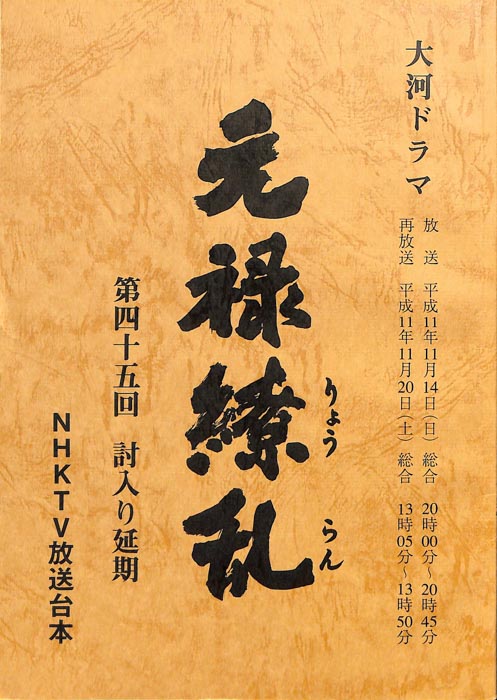 大河ドラマ
放　送　平成11年11月14日(日)　総合　20時00分～20時45分
再放送　平成11年11月20日(土)　総合　13時05分～13時50分
元禄繚乱
りょう　らん
第四十五回　討入り延期
NHKTV放送台本